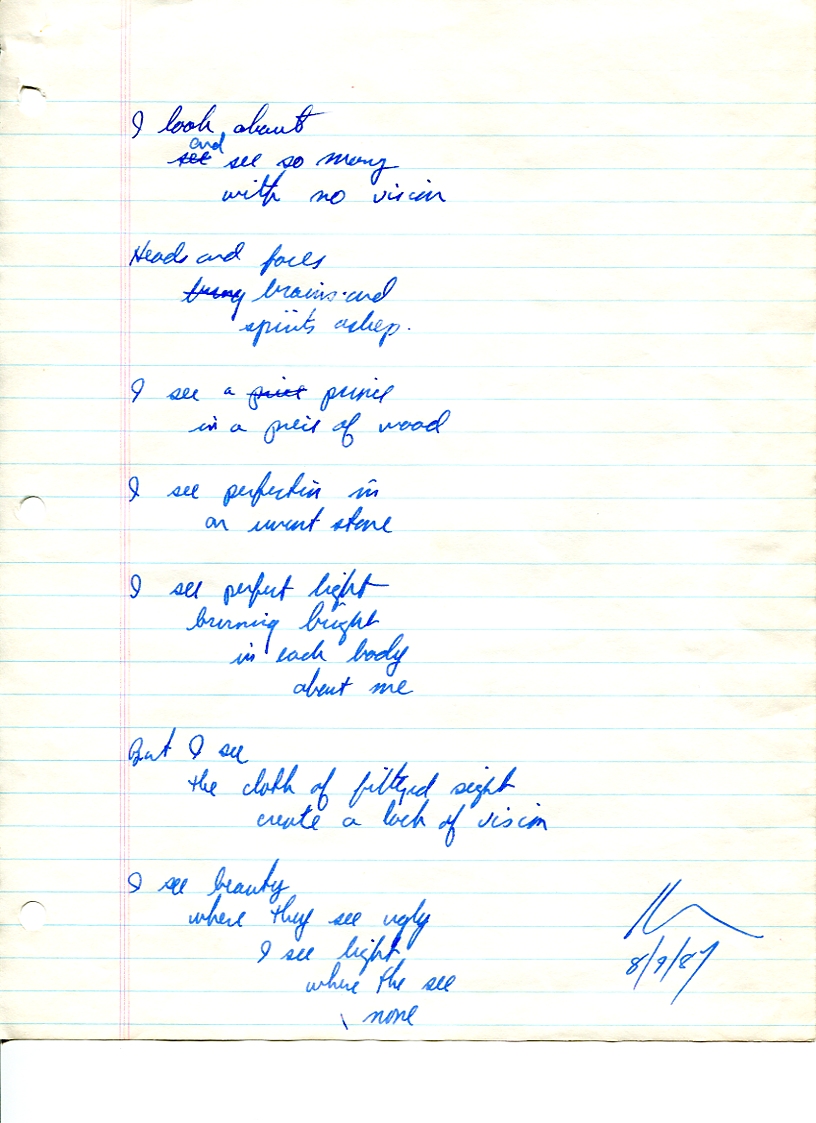 I look about
and
see see so many
with no vision
Heads and faces
brains and
spirits asleep.
I see a prince
in a peice of wood
I see perfection in
an uncut stone
I see perfect light
burning bright
in each body
about me
But I see
the cloth of filtered sight
create a lack of vision
I see beauty
where they see ugly
I see light
where the see
none
8/9/87